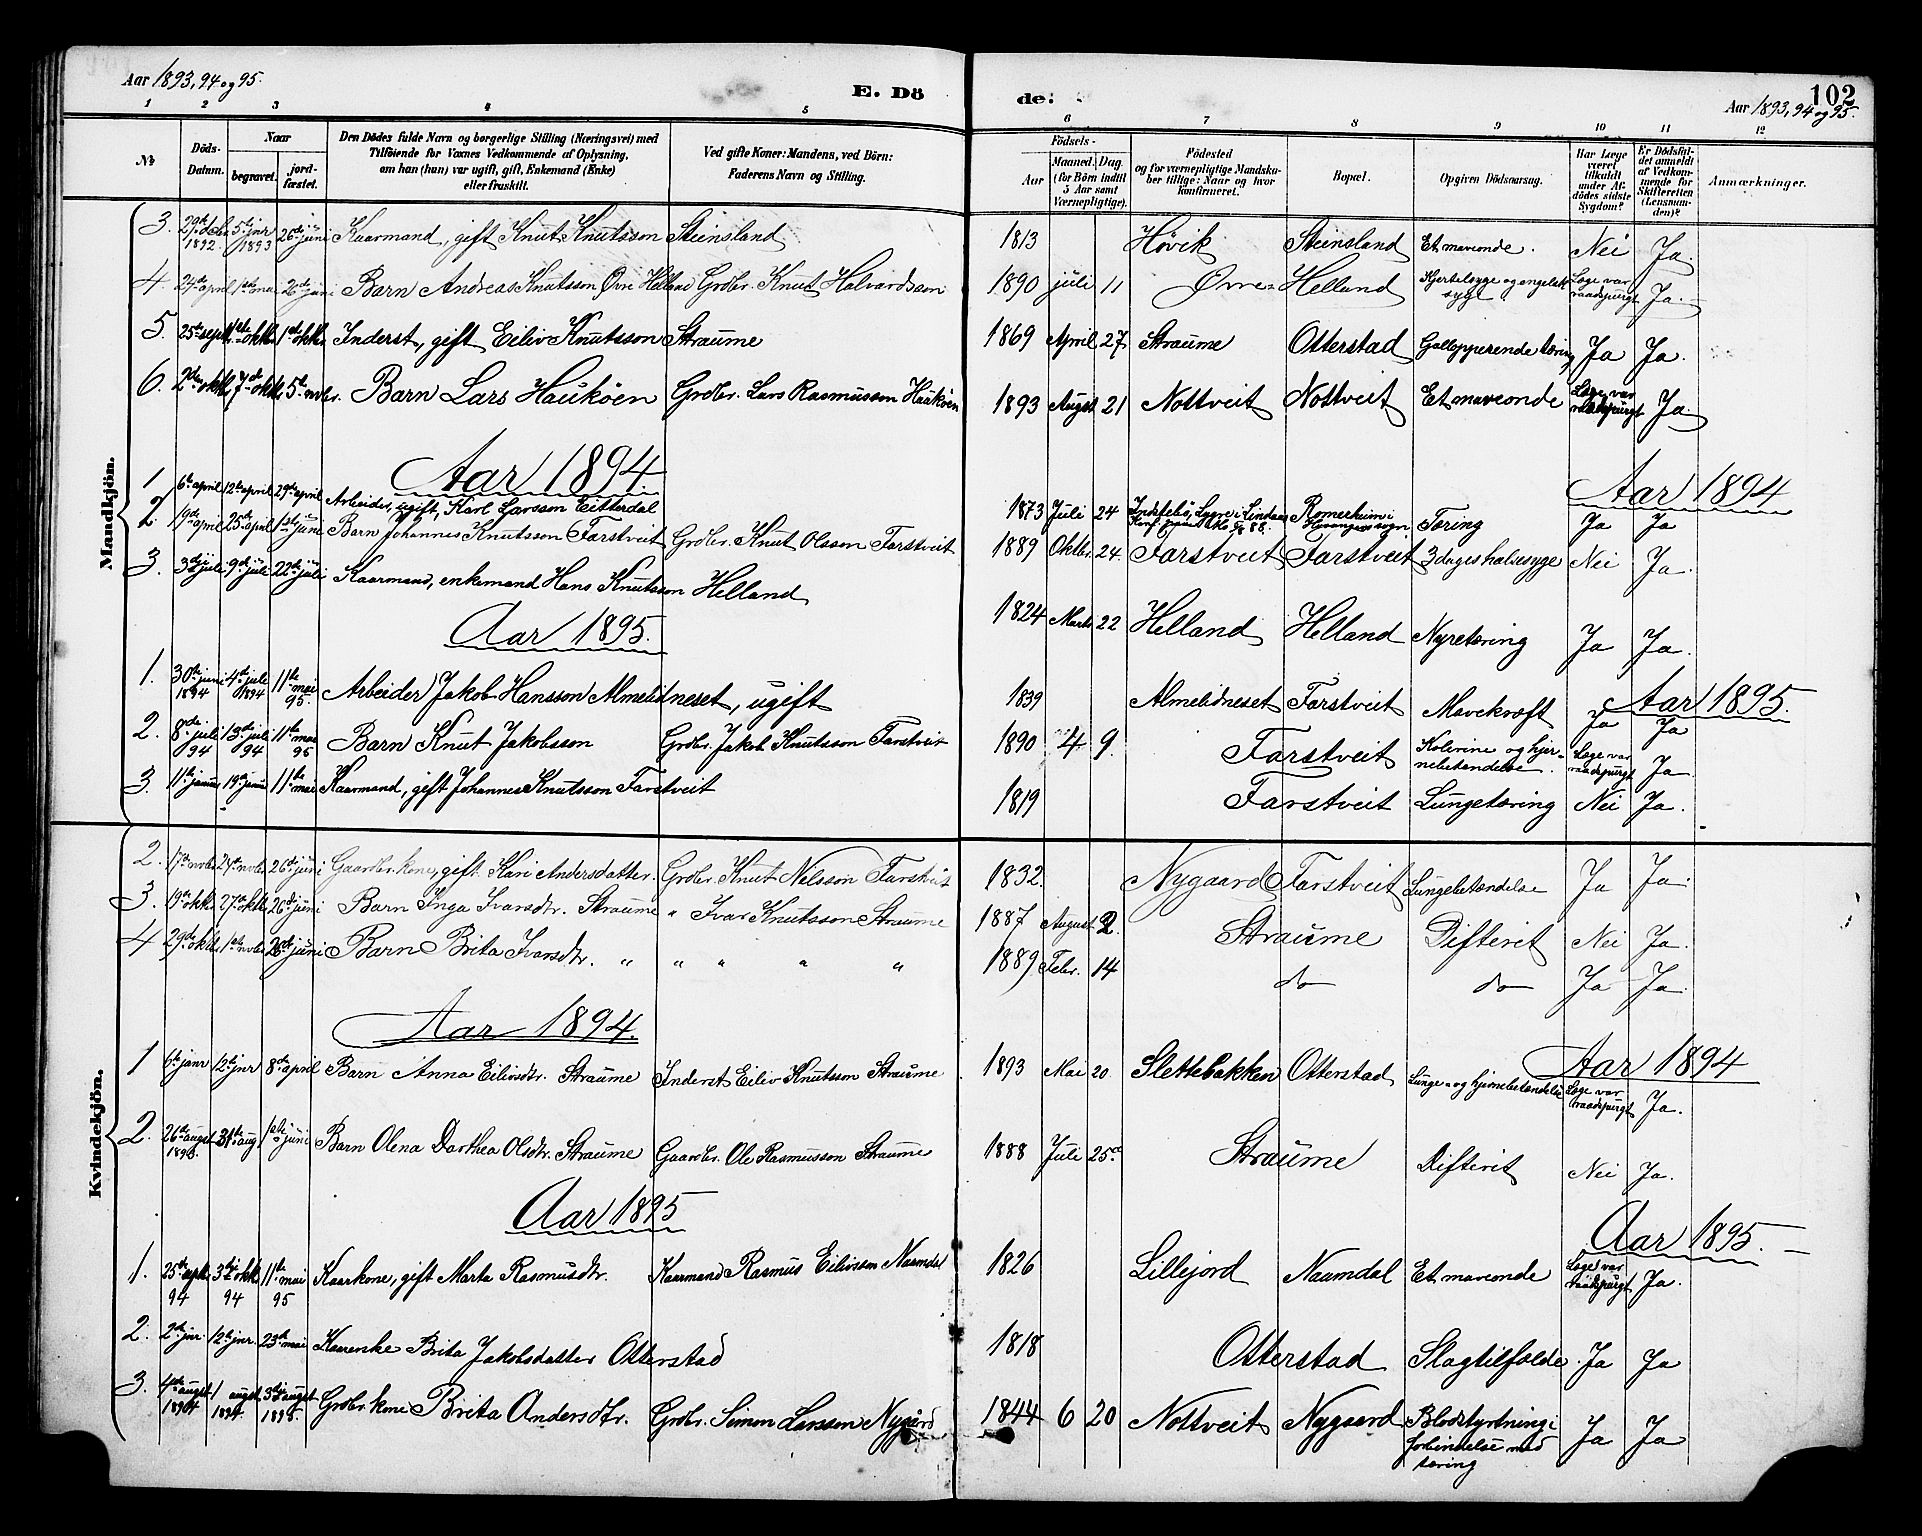 Aar 1893, 94 og 95.
E. Dö
de:
102
Aar 1893, 94 og 95.
1 2 3 4 5 6 7 8 9 10 11 12
No
Döds-Datum.
Naar
begravet.
jord-fæstet.
Den Dödes fulde Navn og borgerlige Stilling (Næringsvei) med
Tilföiende for Voxnes Vedkommende af Oplysning,
om han (hun) var ugift, gift, Enkemand (Enke)
eller fraskilt.
Ved gifte Koner: Mandens, ved Börn:
Faderens Navn og Stilling.
Födsels-
Aar
Maaned. Dag.
(for Börn indtil
5 Aar samt
Værnepligtige).
Födested
og for værnepligtige Mandska-
ber tillige: Naar og hvor
konfirmeret.
Bopæl.
Opgiven Dödsaarsag.
Har Læge
været
tilkaldt
under Af-
dödes sidste
Sygdom?
Er Dödsfal-
det anmeldt
af Vedkom-
mende for
Skifteretten
(Lensman-
den)?
Anmærkninger.
Mandkjön.
3. 29de decbr 1892. 5te jnr 1893 26de juni Kaarmand, gift Knut Knutsson Steinsland 1813 Høvik Steinsland Et maveonde. Nei Ja.
4. 24de april 1ste mai 26de juni Barn Andreas Knutsson Øvre Helland Grdbr. Knut Halvardsson 1890 juli 11 Øvre Helland Kjertelsyge og engelsk syge Læge var raadspurgt Ja.
5. 25te septbr. 1ste oktbr. 1ste oktbr. Inderst, gift Eiliv Knutsson Straume 1869 April 27 Straume Otterstad Galopperende tæring Ja Ja.
6. 2den oktbr. 7de oktbr. 5te nvbr. Barn Lars Haukøen Grdbr. Lars Rasmusson Haukøen 1893 Augst 21 Nottveit Nottveit Et maveonde Læge var raadspurgt Ja.
Aar 1894.
Aar 1894
1 6te april 12te april 29de april Arbeider, ugift, Karl Larsson Eitterdal 1873 Juli 24 Lygre i Lindaas Konf. 88. Romerheim i sogn. Tæring Ja Ja
2. 19de april 25de april 1ste juni Barn Johannes Knutsson Farstveit Grdbr. Knut Olsson Farstveit 1889 Oktbr. 24. Farstveit Farstveit 3 dages halssyge Nei Ja.
3. 3die juli 9de juli 22de juli Kaarmand, enkemand Hans Knutsson Helland 1824 Marts 22 Helland Helland Nyretæring Ja Ja.
Aar 1895.
Aar 1895.
1. 30te juni 1894 4de juli 1894 11te mai 95. Arbeider Jakob Hansson Almelidneset, ugift 1839 Almelidneset Farstveit Mavekræft Ja Ja
2. 8de juli 94 13de juli 94 11te mai 95 Barn Knut Jakobsson Grdbr. Jakob Knutsson Farstveit 1890 4 9. Farstveit Kolerine og hjernebetændelse. Læge var raadspurgt Ja
3. 11te januar 19de januar 11te mai Kaarmand, gift Johannes Knutsson Farstveit 1819 Farstveit Lungetæring Nei Ja.
Kvindekjön.
2. 17de nvbr. 24de nvbr. 26de juni Gaardbr. kone, gift Kari Andersdatter. Grdbr. Knut Nilsson Farstveit 1832. Nygaard Farstveit Lungebetændelse Ja Ja.
3. 19de oktbr. 27de oktbr. 26de juni Barn Inga Ivarsdtr. Straume " Ivar Knutsson Straume 1887 August 2. Straume Difterit Nei Ja.
4 29de oktbr. 1ste nvbr. 26de juni Barn Brita Ivarsdtr. " " " " " 1889 Febr. 14 do do Ja Ja.
Aar 1894.
Aar 1894
1 6te janr 12te jnr 8de april Barn Anna Eilivsdtr. Straume Inderst Eiliv Knutsson Straume 1893 Mai 20. Slettebakken Otterstad Lunge- og hjernebetændelse Læge var raadspurgt Ja.
2. 26de augst 31te aug. 1ste juni Barn Olena Dorthea Olsdtr. Straume Gaardbr. Ole Rasmusson Straume 1888 Juli 25de Straume Difterit Nei Ja.
Aar 1895
Aar 1895.
1. 25de septbr. 94 3die oktbr. 94 11te mai 95 Kaarkone, gift Marta Rasmusdtr. Kaarmand Rasmus Eilivsson Naamdal 1826 Lillejord Naamdal Et maveonde Læge var raadspurgt Ja.
2. 2de jnr. 12te jnr. 23de mai Kaarenke Brita Jakobsdatter Otterstad 1818 Otterstad Slagtilfælde. Ja Ja
3. 4de augst 1894 augst 1894. 3die augst 1895. Grdbr. kone Brita Andersdtr. Grdbr. Simon Larsson Nygård 1844 6 20 Nottveit Nygaard Blodstyrtning i forbindelse med tæring Ja Ja